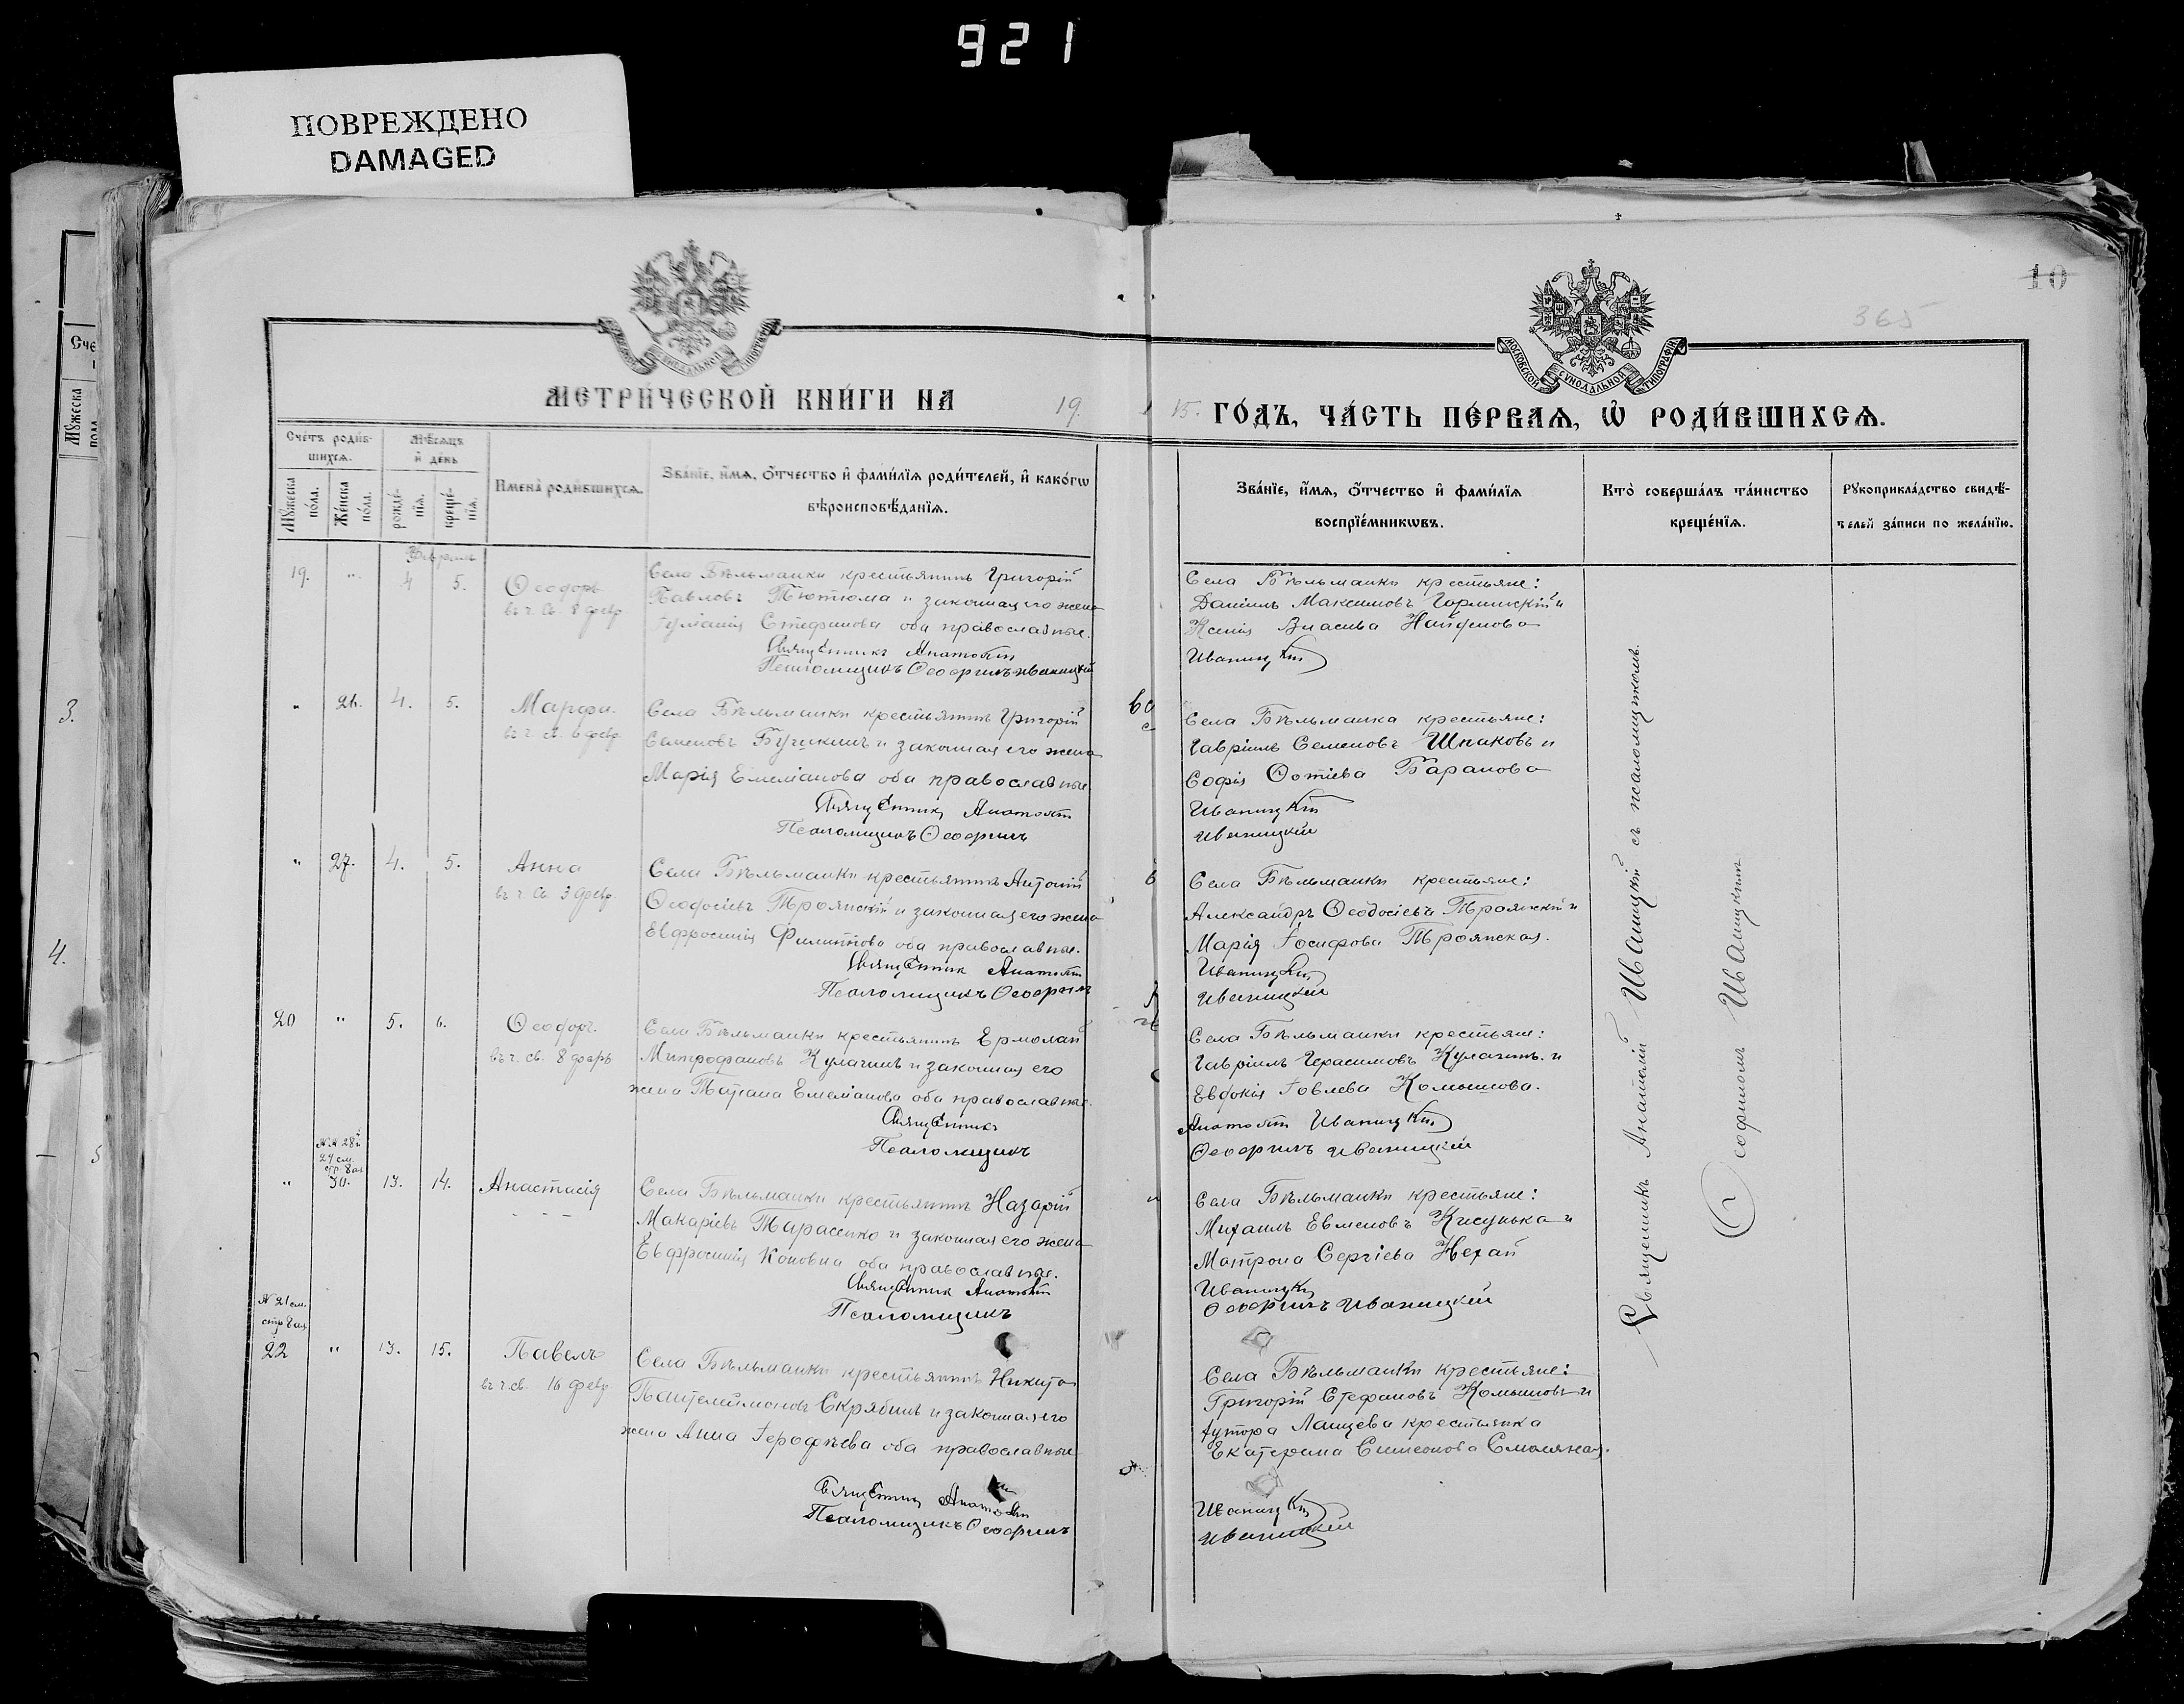 921
ПОВРЕЖДЕНО
DAMAGED
10
365
МЕТРИ́ЧЕСКОЙ КНИ́ГИ НА 19
15. ГО́ДЪ, ЧА́СТЬ ПЕ́РВАѦ, Ѡ҆ РОДИ́ВШИХСѦ.
МОСКОВСКОЙ СѴНОДАЛЬНОЙ ТИПОГРАФІИ
Сче́тъ роди́в-
шихсѧ.
Мѣ́сѧцъ
и҆ де́нь
Мꙋ́жеска по́ла.
Же́нска по́ла.
рожде́-
нїѧ.
креще́-
нїѧ.
Имена̀ роди́вшихсѧ.
Зва́нїе, и҆́мѧ, о҆́тчество и҆ фами́лїѧ роди́телей, и҆ како́гѡ
вѣроисповѣ́данїѧ.
Зва́нїе, и҆́мѧ, о҆́тчество и҆ фами́лїѧ
воспрїе́мникѡвъ.
Кто̀ соверша́лъ та́инство
креще́нїѧ.
Рꙋкоприкла́дство свидѣ́-
телей за́писи по жела́нїю.
Февраль
19. " 4 5. Ѳеодоръ
въ ч. св. 8 февр.
Села Бѣльманки крестьянинъ Григорій
Павловъ Тютюма и законная его жена
Стефанова оба православные.
Священникъ Анатолій
Псаломщикъ Ѳеофилъ Иваницкій
Села Бѣльманки крестьяне:
Даніилъ Максимовъ Горлинскій и
Ксенія Власиева Найденова
Иваницкій
" 26. 4. 5. Марѳа.
въ ч. св. 6 февр.
Села Бѣльманки крестьянинъ Григорій
Семеновъ и законная его жена
Марія Емеліанова оба православные.
Священникъ Анатолій
Псаломщикъ Ѳеофилъ
Села Бѣльманка крестьяне:
Гавріилъ Семеновъ Шпаковъ и
Софія Фотіева Баранова
Иваницкій
Иваницкій
" 27. 4. 5. Анна
въ ч. св. 3 февр.
Села Бѣльманки крестьянинъ Антоній
Ѳеодосіевъ Троянскій и законная его жена
Евфросинія Филиппова оба православные.
Священникъ Анатолій
Псаломщикъ Ѳеофилъ
Села Бѣльманки крестьяне:
Александръ Ѳеодосіевъ Троянскій и
Марія Іосифова Троянская.
Иваницкій
Иваницкій
20 " 5. 6. Ѳеодоръ.
въ ч. св. 8 февр.
Села Бѣльманки крестьянинъ Ермолай
Митрофановъ Кулагинъ и законная его
жена Татіана Емеліанова оба православные.
Священникъ
Псаломщикъ
Села Бѣльманки крестьяне:
Гавріилъ Герасимовъ Кулагинъ и
Евдокія Іовлева Комышова.
Анатолій Иваницкій
Ѳеофилъ Иваницкій
№№ 28 и
29 см.
стр. 8 ая
" 30. 13. 14. Анастасія
Села Бѣльманки крестьянинъ Назарій
Макаріевъ Тарасенко и законная его жена
Евфросинія Кононова оба православные.
Священникъ Анатолій
Псаломщикъ
Села Бѣльманки крестьяне:
Михаилъ Евменовъ и
Матрона Сергіева Нехай
Иваницкій
Ѳеофилъ Иваницкій
№ 21 см.
стр 8 ая
22 " 13. 15. Павелъ
въ ч. св. 16 февр.
Села Бѣльманки крестьянинъ Никита
Пантелеймоновъ Скрябинъ и законная его
жена Анна Іерофѣева оба православные
Священникъ Анатолій
Псаломщикъ Ѳеофилъ
Села Бѣльманки крестьяне:
Григорій Стефановъ Комышовъ и
хутора Ланцева крестьянка
Екатерина Симеонова Смоляная.
Иваницкій
Иваницкій
Священникъ Анатолій Иваницкій съ псаломщикомъ
Ѳеофиломъ Иваницкимъ
Сче
Мꙋ́жеска
пола
3.
4.